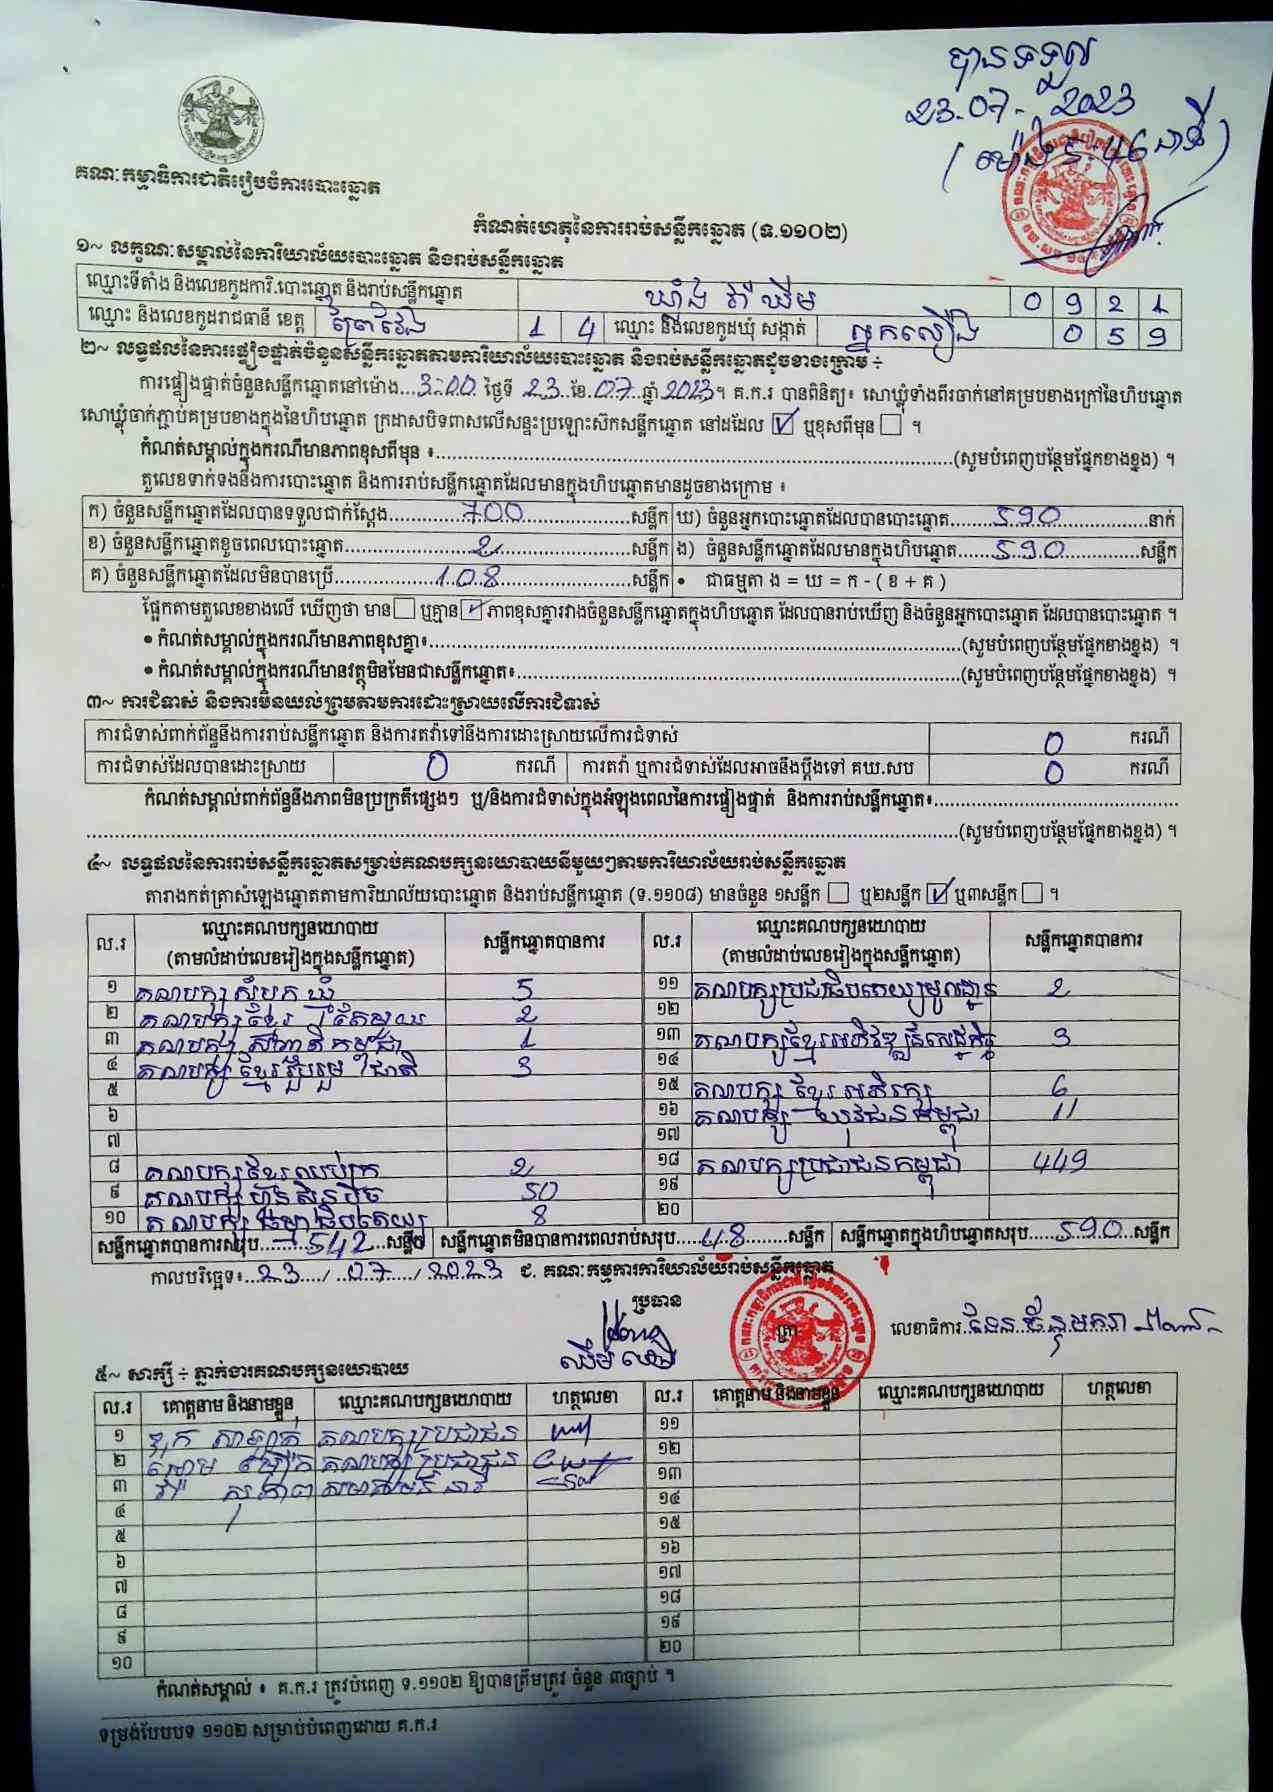 បានទទួល
23-07-2023
(ម៉ោង 5-46 នាទី)
គណៈកម្មាធិការជាតិរៀបចំការបោះឆ្នោត
កំណត់ហេតុនៃការរាប់សន្លឹកឆ្នោត (ទ.១១០២)
១~ លក្ខណៈសម្គាល់នៃការិយាល័យបោះឆ្នោត និងរាប់សន្លឹកឆ្នោត
ឈ្មោះទីតាំង និងលេខកូដការិ.បោះឆ្នោត និងរាប់សន្លឹកឆ្នោត 0 9 2 1
ឈ្មោះ និងលេខកូដរាជធានី ខេត្ត ព្រៃវែង 1 4 ឈ្មោះ និងលេខកូដឃុំ សង្កាត់ អ្នកលឿង 0 5 9
២~ លទ្ធផលនៃការផ្ទៀងផ្ទាត់ចំនួនសន្លឹកឆ្នោតតាមការិយាល័យបោះឆ្នោត និងរាប់សន្លឹកឆ្នោតដូចខាងក្រោម ៖
ការផ្ទៀងផ្ទាត់ចំនួនសន្លឹកឆ្នោតនៅម៉ោង...3-00 ថ្ងៃទី 23 ខែ.07...ឆ្នាំ 2023។ គ.ក.រ បានពិនិត្យ៖ សោឃ្លុំទាំងពីរចាក់នៅគម្របខាងក្រៅនៃហិបឆ្នោត
សោឃ្លុំចាក់ភ្ជាប់គម្របខាងក្នុងនៃហិបឆ្នោត ក្រដាសបិទពាសលើសន្ទះប្រឡោះស៊កសន្លឹកឆ្នោត នៅដដែល ☑ ឬខុសពីមុន ☐ ។
កំណត់សម្គាល់ក្នុងករណីមានភាពខុសពីមុន ៖...(សូមបំពេញបន្ថែមផ្នែកខាងខ្នង) ។
តួលេខទាក់ទងនឹងការបោះឆ្នោត និងការរាប់សន្លឹកឆ្នោតដែលមានក្នុងហិបឆ្នោតមានដូចខាងក្រោម ៖
ក) ចំនួនសន្លឹកឆ្នោតដែលបានទទួលជាក់ស្តែង...700...សន្លឹក ឃ) ចំនួនអ្នកបោះឆ្នោតដែលបានបោះឆ្នោត...590...នាក់
ខ) ចំនួនសន្លឹកឆ្នោតខូចពេលបោះឆ្នោត...2...សន្លឹក ង) ចំនួនសន្លឹកឆ្នោតដែលមានក្នុងហិបឆ្នោត...590...សន្លឹក
គ) ចំនួនសន្លឹកឆ្នោតដែលមិនបានប្រើ...108...សន្លឹក • ជាធម្មតា ង = ឃ = ក - ( ខ + គ )
ផ្អែកតាមតួលេខខាងលើ ឃើញថា មាន ☐ ឬគ្មាន ☑ ភាពខុសគ្នារវាងចំនួនសន្លឹកឆ្នោតក្នុងហិបឆ្នោត ដែលបានរាប់ឃើញ និងចំនួនអ្នកបោះឆ្នោត ដែលបានបោះឆ្នោត ។
• កំណត់សម្គាល់ក្នុងករណីមានភាពខុសគ្នា៖...(សូមបំពេញបន្ថែមផ្នែកខាងខ្នង) ។
• កំណត់សម្គាល់ក្នុងករណីមានវត្ថុមិនមែនជាសន្លឹកឆ្នោត៖...(សូមបំពេញបន្ថែមផ្នែកខាងខ្នង) ។
៣~ ការជំទាស់ និងការមិនយល់ព្រមតាមការដោះស្រាយលើការជំទាស់
ការជំទាស់ពាក់ព័ន្ធនឹងការរាប់សន្លឹកឆ្នោត និងការតវ៉ាទៅនឹងការដោះស្រាយលើការជំទាស់ 0 ករណី
ការជំទាស់ដែលបានដោះស្រាយ 0 ករណី ការតវ៉ា ឬការជំទាស់ដែលអាចនឹងប្តឹងទៅ គឃ.សប 0 ករណី
កំណត់សម្គាល់ពាក់ព័ន្ធនឹងភាពមិនប្រក្រតីផ្សេងៗ ឬ/និងការជំទាស់ក្នុងអំឡុងពេលនៃការផ្ទៀងផ្ទាត់ និងការរាប់សន្លឹកឆ្នោត៖...
...(សូមបំពេញបន្ថែមផ្នែកខាងខ្នង) ។
៤~ លទ្ធផលនៃការរាប់សន្លឹកឆ្នោតសម្រាប់គណបក្សនយោបាយនីមួយៗតាមការិយាល័យរាប់សន្លឹកឆ្នោត
តារាងកត់ត្រាសំឡេងឆ្នោតតាមការិយាល័យបោះឆ្នោត និងរាប់សន្លឹកឆ្នោត (ទ.១១០៨) មានចំនួន ១សន្លឹក ☐ ឬ២សន្លឹក ☑ ឬ៣សន្លឹក ☐ ។
ល.រ ឈ្មោះគណបក្សនយោបាយ (តាមលំដាប់លេខរៀងក្នុងសន្លឹកឆ្នោត) សន្លឹកឆ្នោតបានការ ល.រ ឈ្មោះគណបក្សនយោបាយ (តាមលំដាប់លេខរៀងក្នុងសន្លឹកឆ្នោត) សន្លឹកឆ្នោតបានការ
១ គណបក្សសំបុកឃ្មុំ 5 ១១ គណបក្សប្រជាធិបតេយ្យមូលដ្ឋាន 2
២ គណបក្សខ្មែរ 2 ១២
៣ គណបក្ស កម្ពុជា 1 ១៣ គណបក្សខ្មែរអភិវឌ្ឍន៍សេដ្ឋកិច្ច 3
៤ គណបក្សខ្មែររួបរួមជាតិ 3 ១៤
៥ ១៥ គណបក្សខ្មែរអភិរក្ស 6
៦ ១៦ គណបក្សយុវជនកម្ពុជា 11
៧ ១៧
៨ គណបក្សខ្មែរឈប់ក្រ 2 ១៨ គណបក្សប្រជាជនកម្ពុជា 449
៩ គណបក្សហ៊្វុនស៊ិនប៉ិច 50 ១៩
១០ គណបក្សធម្មាធិបតេយ្យ 8 ២០
សន្លឹកឆ្នោតបានការសរុប...542...សន្លឹក សន្លឹកឆ្នោតមិនបានការពេលរាប់សរុប...48...សន្លឹក សន្លឹកឆ្នោតក្នុងហិបឆ្នោតសរុប...590...សន្លឹក
កាលបរិច្ឆេទ៖...23.../...07.../...2023 ជ. គណៈកម្មការការិយាល័យរាប់សន្លឹកឆ្នោត
ប្រធាន
ត្រា
លេខាធិការ
៥~ សាក្សី ÷ ភ្នាក់ងារគណបក្សនយោបាយ
ល.រ គោត្តនាម និងនាមខ្លួន ឈ្មោះគណបក្សនយោបាយ ហត្ថលេខា ល.រ គោត្តនាម និងនាមខ្លួន ឈ្មោះគណបក្សនយោបាយ ហត្ថលេខា
១ គណបក្សប្រជាជន ១១
២ គណបក្សប្រជាជន ១២
៣ ១៣
៤ ១៤
៥ ១៥
៦ ១៦
៧ ១៧
៨ ១៨
៩ ១៩
១០ ២០
កំណត់សម្គាល់ ៖ គ.ក.រ ត្រូវបំពេញ ទ.១១០២ ឱ្យបានត្រឹមត្រូវ ចំនួន ៣ច្បាប់ ។
ទម្រង់បែបបទ ១១០២ សម្រាប់បំពេញដោយ គ.ក.រ